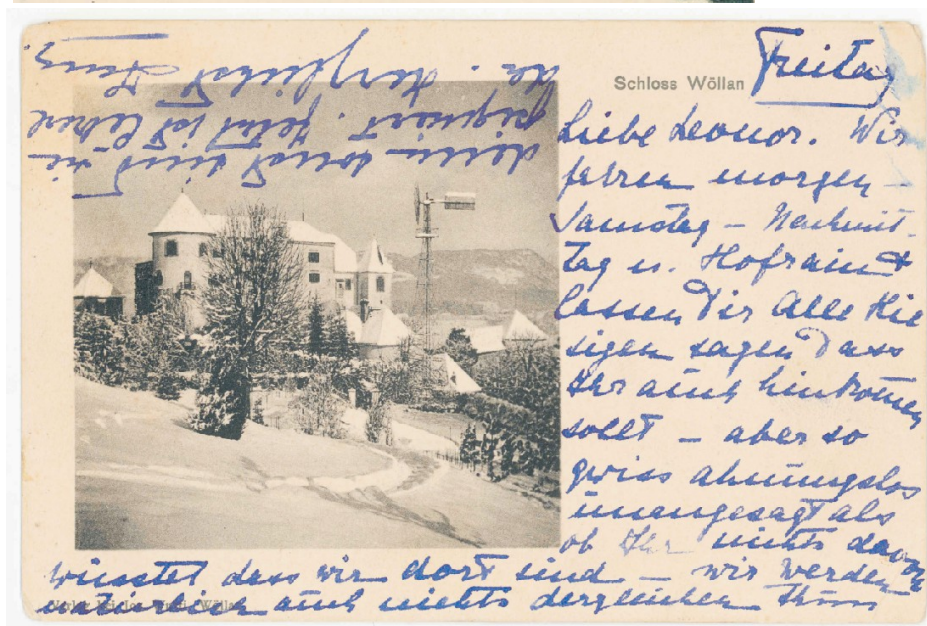 Schloss Wöllan
Freitag
Liebe Leonor. Wir
fahren morgen –
Samstag – Nachmit-
tag n. Hofrain +
lassen Dir Alle Hie
sigen sagen Dass
Ihr auch hinkomen
sollt – aber so
gwiss ahnungslos
unangesagt als
ob Ihr nichts davon
wüsstet dass wir dort sind – wir werden
natürlich auch nichts dergleichen thun
denn sonst sind sie
piquirt. Jetzt ist
die. Herzlichst